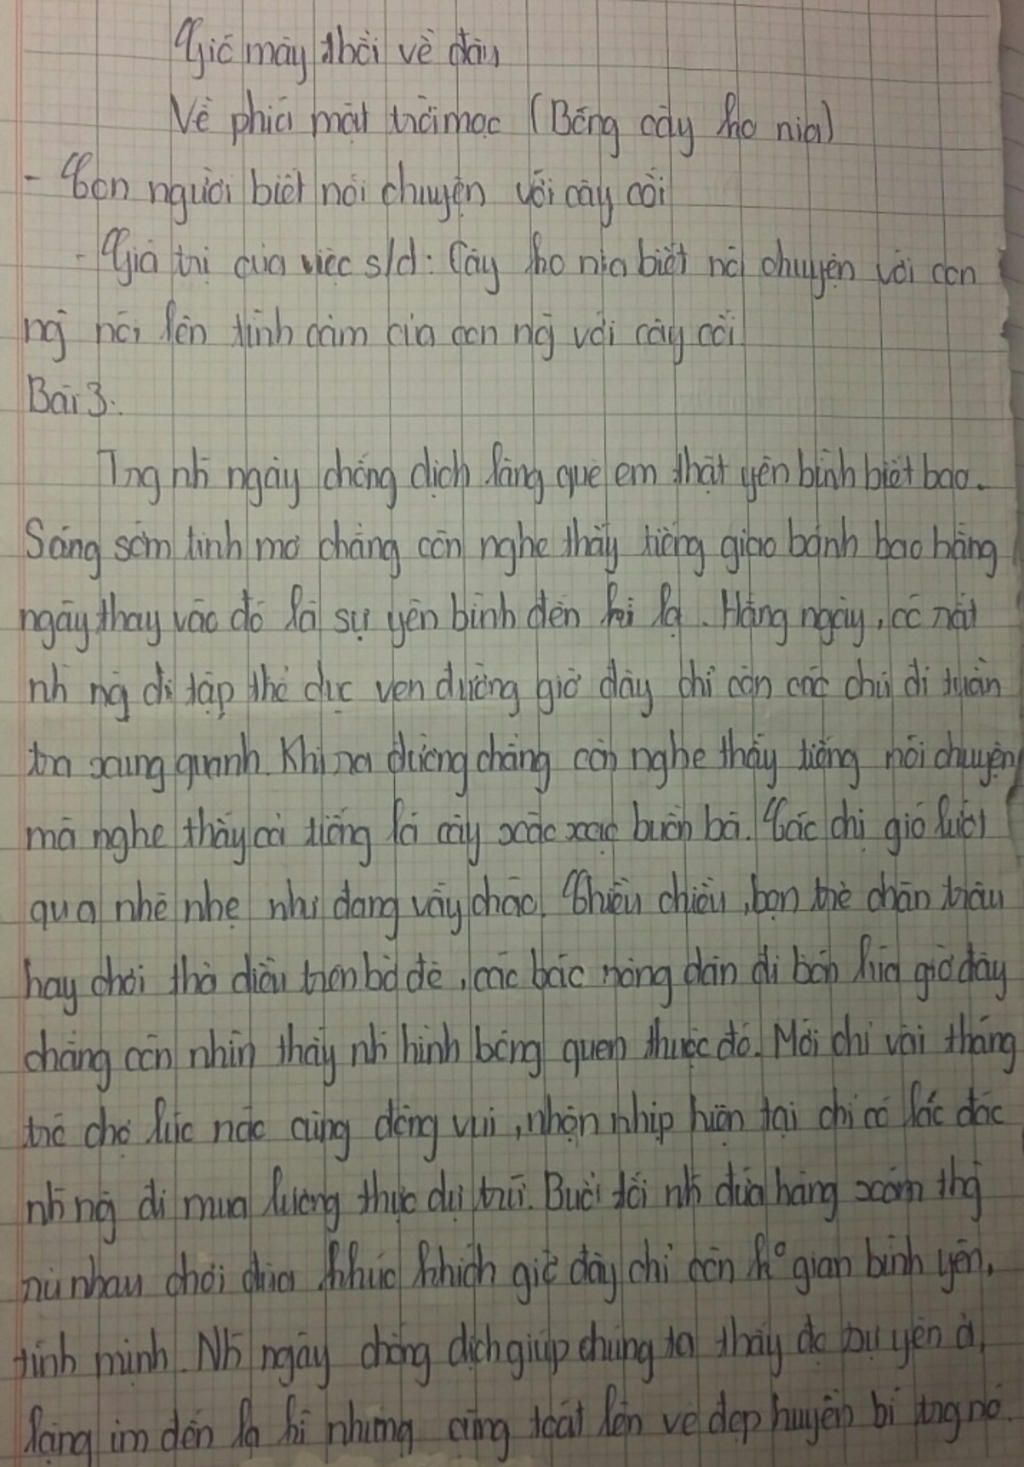 Gió mây thổi về đâu
Về phía mặt trời mọc (Bóng cây kơ nia)
- Con người biết nói chuyện với cây cối
- Giá trị của việc s/d: Cây kơ nia biết nói chuyện với con
ng nói lên tình cảm của con ng với cây cối
Bài 3.
Trg nh ngày chống dịch làng quê em thật yên bình biết bao.
Sáng sớm tinh mơ chẳng còn nghe thấy tiếng giao bánh bao hằng
ngày thay vào đó là sự yên bình đến kì lạ. Hằng ngày, có rất
nh ng đi tập thể dục ven đường giờ đây chỉ còn các chú đi tuần
tra xung quanh. Khi ra đường chẳng còn nghe thấy tiếng nói chuyện
mà nghe thấy cả tiếng lá cây xào xạc buồn bã. Các chị gió lướt
qua nhè nhẹ như đang vẫy chào. Chiều chiều, bọn trẻ chăn trâu
hay chơi thả diều trên bờ đê, các bác nông dân đi bón lúa giờ đây
chẳng còn nhìn thấy nh hình bóng quen thuộc đó. Mới chỉ vài tháng
trc chợ lúc nào cũng đông vui, nhộn nhịp hiện tại chỉ có lác đác
nh ng đi mua lương thực dự trữ. Buổi tối nh đứa hàng xóm thg
rủ nhau chơi đùa khúc khích giờ đây chỉ còn ko gian bình yên,
tĩnh mịnh. Nh ngày chống dịch giúp chúng ta thấy đc sự yên ả,
lặng im đến lạ kì nhưng cũng toát lên vẻ đẹp huyền bí trg nó.